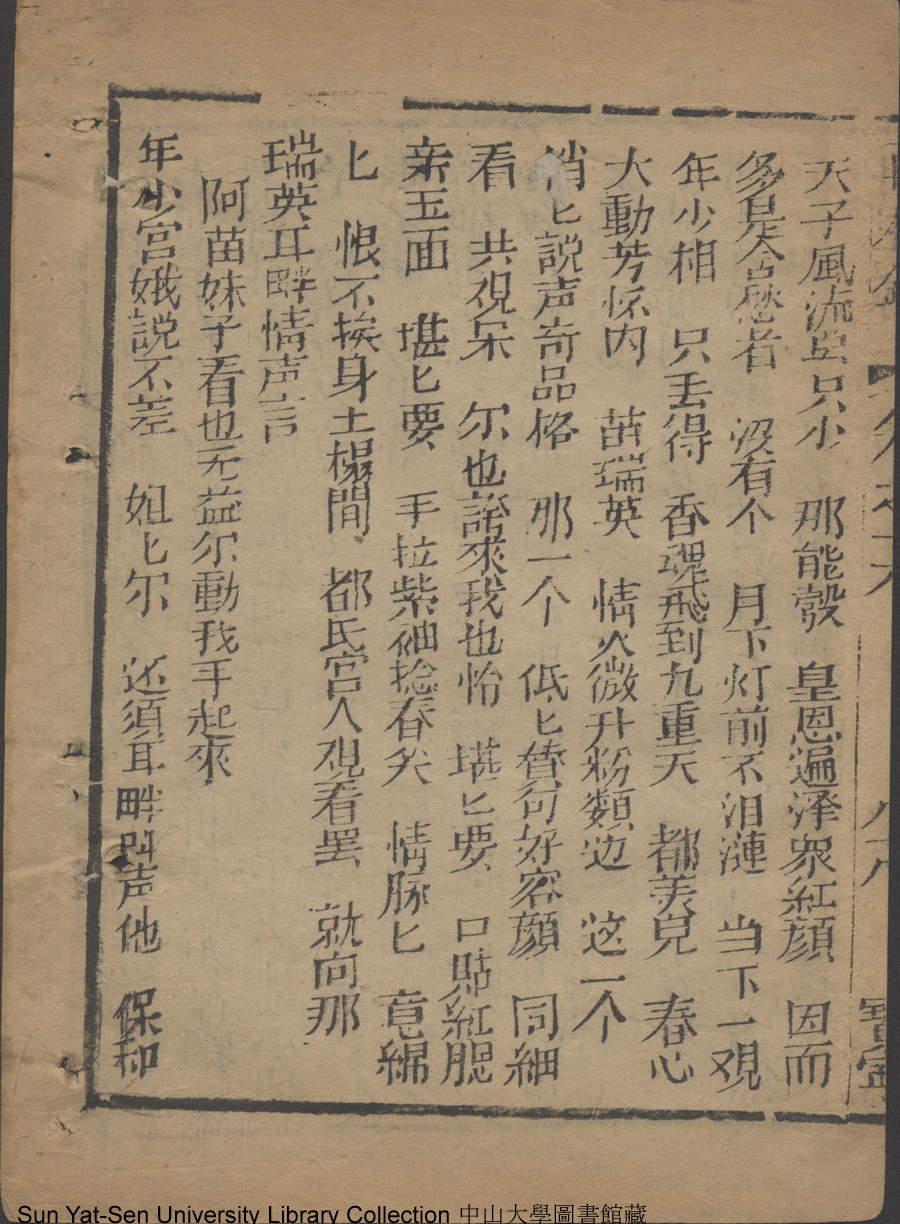 天子風流㒵只少　那能彀　皇恩遍澤衆紅顔　因而
多是含愁者　没有个　月下灯前不泪漣　当下一观
年少相　只丢得　香魂飛到九重天　都美皃　春心
大動芳怀内　苗瑞英　情火微升粉頬边　这一个
悄匕説声奇品格　那一个　低匕賛句好容顔　同細
看　共观呆　尔也誇來我也怡　堪匕要　口貼紅腮
亲玉面　堪匕要　手拉紫袖捻春尖　情脉匕　意綿
匕　恨不挨身土榻間　都氏宫人观看罢　就向那
瑞英耳畔情声言
阿苗妹子看也无益尔動我手起來
年少宫娥説不差　姐匕尔　还須耳畔叫声他　保和
寳寧
Sun Yat-Sen University Library Collection 中山大學圖書館藏